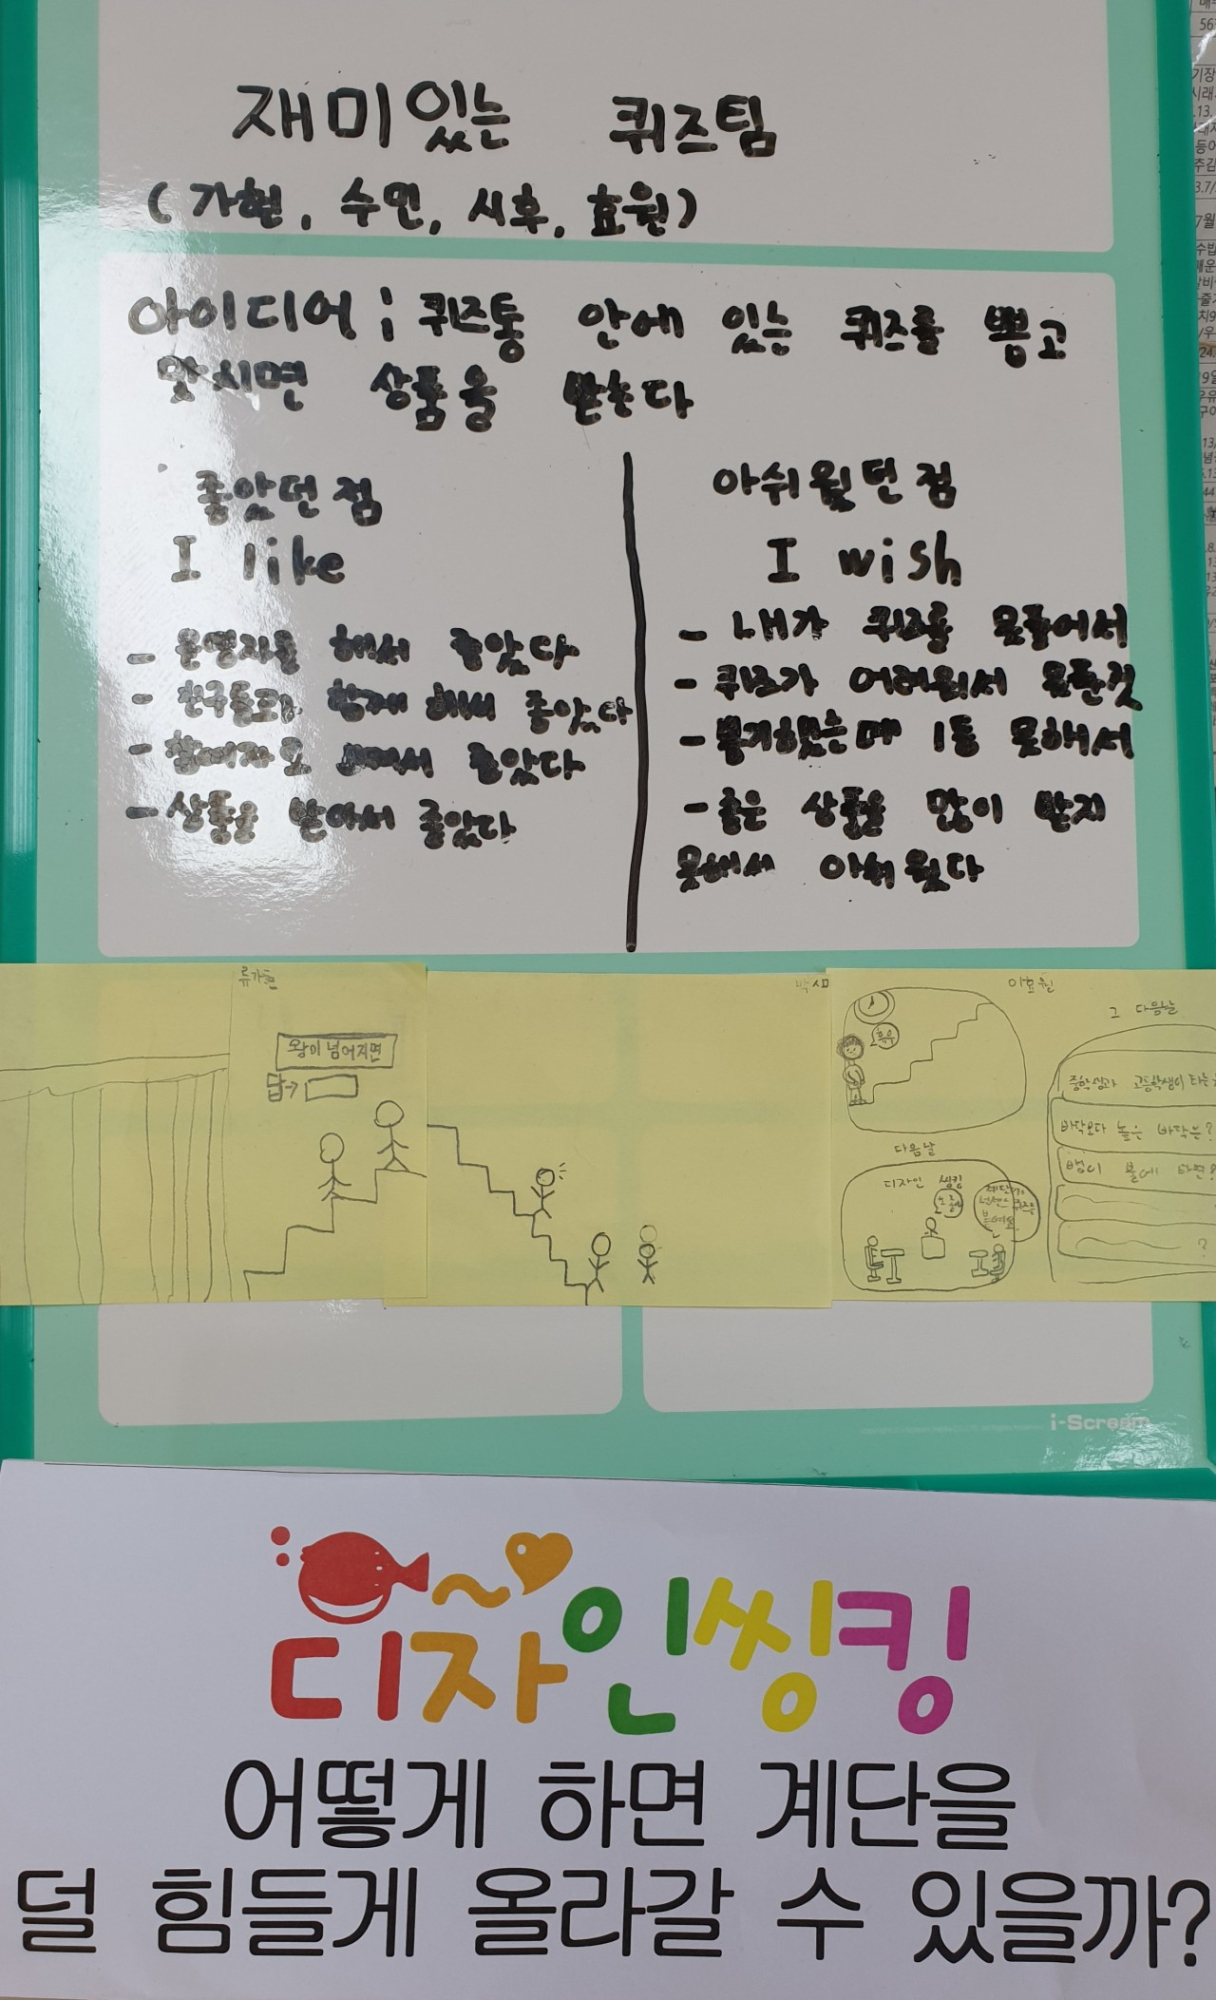 재미있는 퀴즈팀
(가현, 수민, 시후, 효원)
아이디어 ; 퀴즈통 안에 있는 퀴즈를 뽑고
맞치면 상품을 받는다
좋았던 점
I like
- 운영자를 해서 좋았다
- 친구들과 함께 해서 좋았다
- 참여자도 해서 좋았다
- 상품을 받아서 좋았다
아쉬웠던 점
I wish
- 내가 퀴즈를 못풀어서
- 퀴즈가 어려워서 못한것
- 뽑기했는데 1등 못해서
- 좋은 상품을 많이 받지
못해서 아쉬웠다
류가현
왕이 넘어지면
답→
이효원
다음날
디자인 씽킹
그 다음날
중학생과 고등학생이 타는
바닥보다 높은 바닥은?
뱀이 불에 타면?
?
i-Scream
디자인씽킹
어떻게 하면 계단을
덜 힘들게 올라갈 수 있을까?